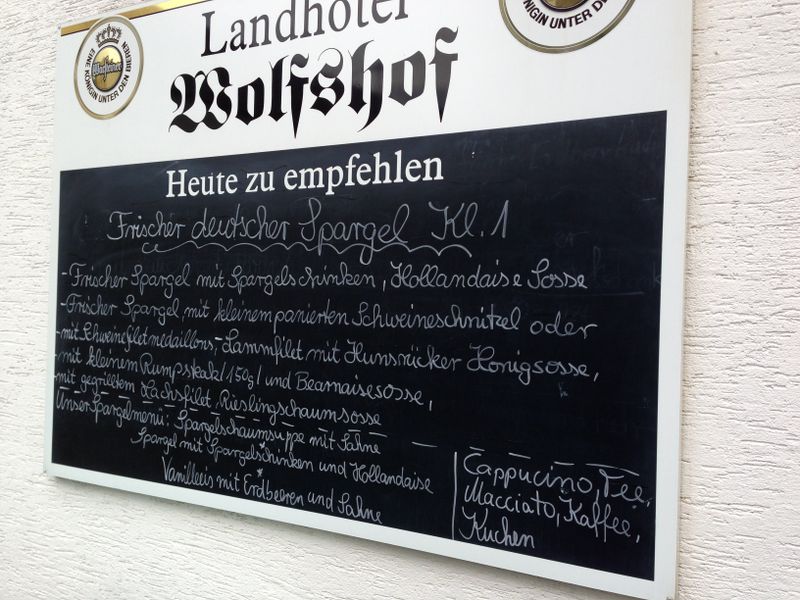 EINE KÖNIGIN UNTER DEN BIEREN
Warsteiner
KÖNIGIN UNTER DEN
Landhotel
Wolfshof
Heute zu empfehlen
Frischer deutscher Spargel Kl. 1
- Frischer Spargel mit Spargelschinken, Hollandaise Sosse
- Frischer Spargel, mit kleinem panierten Schweineschnitzel oder
- mit Schweinefiletmedaillons, - Lammfilet mit Hunsrücker Honigsosse,
- mit kleinem Rumpskak /150g/ und Bearnaisesosse,
- mit gegrilltem Lachsfilet, Rieslingschaumsosse
Unser Spargelmenü: Spargelschaumsuppe mit Sahne
Spargel mit Spargelschinken und Hollandaise
*
Vanilleeis mit Erdbeeren und Sahne
Cappucino, Tee,
Macciato, Kaffee,
Kuchen